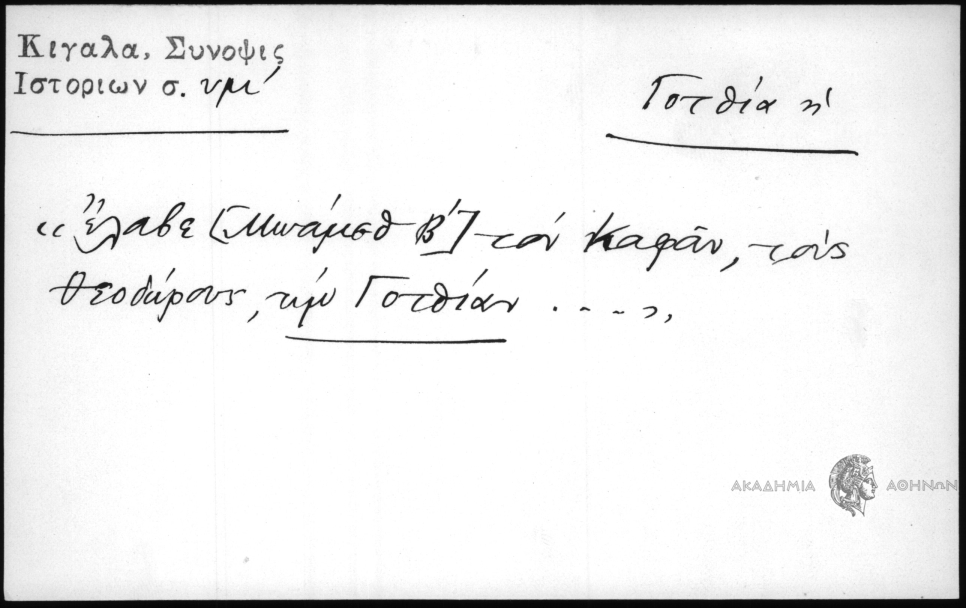 Κιγαλα, Συνοψις
Ιστοριων σ. υμι΄
Γοτθία ἡ
«Ἔλαβε [Μωάμεθ Β΄] τὸν Καφᾶν, τοὺς
Θεοδώρους, τὴν Γοτθίαν . . . . »,
ΑΚΑΔΗΜΙΑ ΑΘΗΝΩΝ